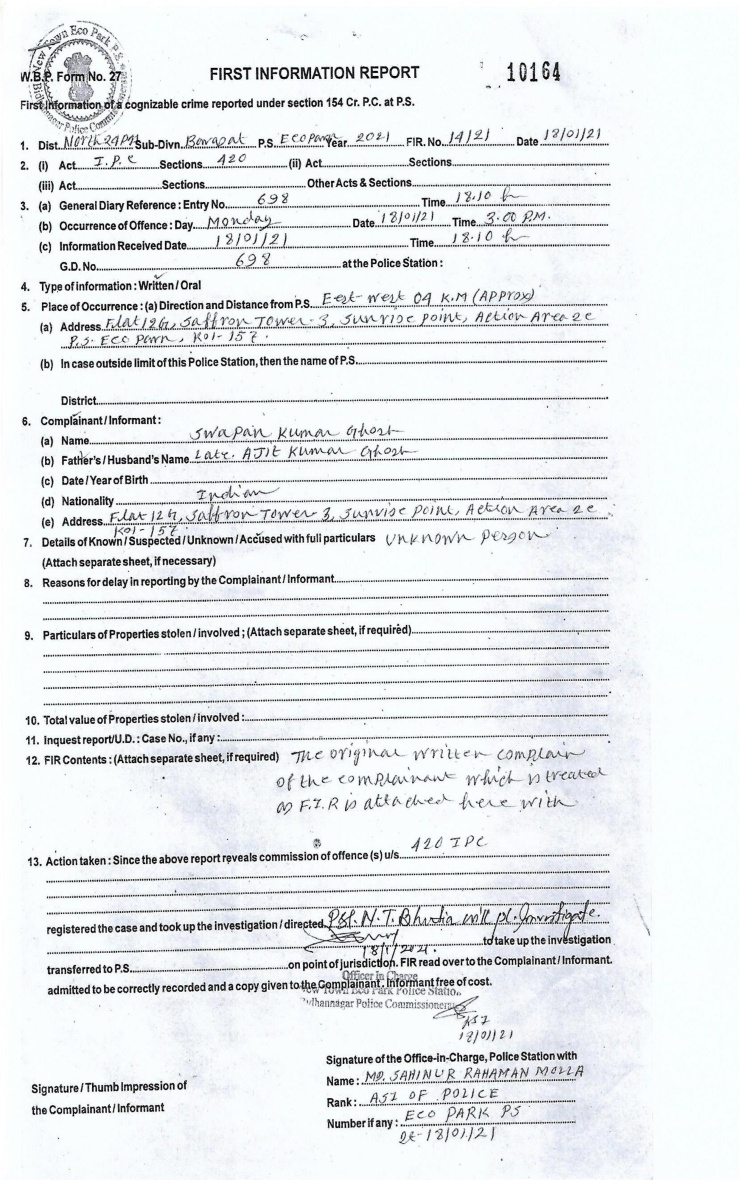 New Town Eco Park P.S.
Bidhannagar Police Commissionerate
W.B.P. Form No. 27
FIRST INFORMATION REPORT
10164
First Information of a cognizable crime reported under section 154 Cr. P.C. at P.S.
1. Dist. North 24 Pgs Sub-Divn. Barasat P.S. Eco Park Year 2021 FIR. No. 14/21 Date 18/01/21
2. (i) Act I.P.C Sections 420 (ii) Act Sections
(iii) Act Sections Other Acts & Sections
3. (a) General Diary Reference : Entry No. 698 Time 18.10 h
(b) Occurrence of Offence : Day Monday Date 18/01/21 Time 3.00 P.M.
(c) Information Received Date 18/01/21 Time 18.10 h
G.D. No. 698 at the Police Station :
4. Type of information : Written / Oral
5. Place of Occurrence : (a) Direction and Distance from P.S. East-West 04 K.M (APProx)
(a) Address Flat 12G, Saffron Tower-3, Sunrise Point, Action Area 2C
P.S- Eco Park, Kol-157.
(b) In case outside limit of this Police Station, then the name of P.S.
District
6. Complainant / Informant :
(a) Name Swapan Kumar Ghosh
(b) Father's / Husband's Name Late. AJIt Kumar Ghosh
(c) Date / Year of Birth
(d) Nationality Indian
(e) Address Flat 12G, Saffron Tower 3, Sunrise Point, Action Area 2C
Kol-157.
7. Details of Known / Suspected / Unknown / Accused with full particulars Unknown Person
(Attach separate sheet, if necessary)
8. Reasons for delay in reporting by the Complainant / Informant
9. Particulars of Properties stolen / involved ; (Attach separate sheet, if required)
10. Total value of Properties stolen / involved :
11. Inquest report/U.D. : Case No., if any :
12. FIR Contents : (Attach separate sheet, if required) The original written complain
of the complainant which is treated
as F.I.R is attached here with
13. Action taken : Since the above report reveals commission of offence (s) u/s. 420 IPC
registered the case and took up the investigation / directed N.T. Bhutia will pl. Investigate.
18/1/2021.
to take up the investigation
transferred to P.S. on point of jurisdiction. FIR read over to the Complainant / Informant.
Officer in Charge
admitted to be correctly recorded and a copy given to the Complainant. Informant free of cost.
New Town Eco Park Police Station
Bidhannagar Police Commissionerate
ASI
18/01/21
Signature of the Office-in-Charge, Police Station with
Signature / Thumb Impression of
the Complainant / Informant
Name : MD. SAHINUR RAHAMAN MOLLA
Rank : ASI OF POLICE
Number if any : ECO PARK PS
Dt-18/01/21